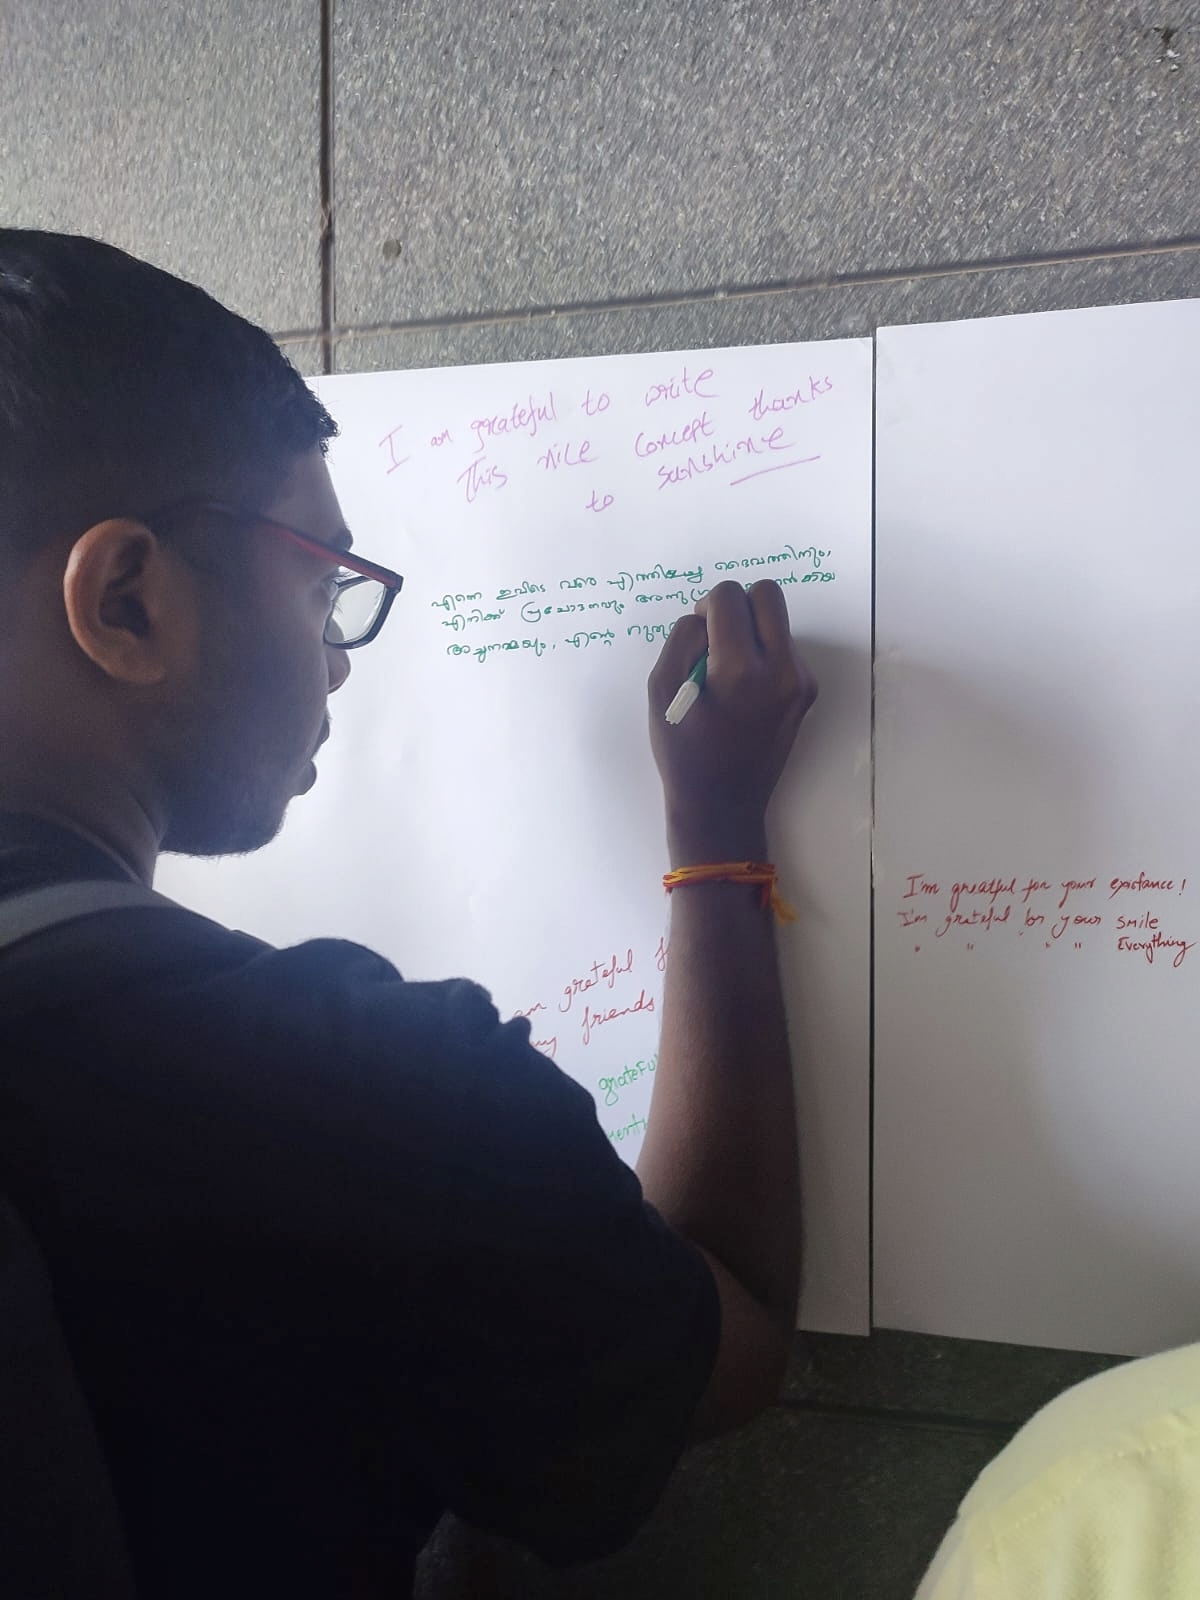 I am grateful to write
This nice concept thanks
to sunshine
എന്നെ ഇവിടെ വരെ എത്തിച്ച ദൈവത്തിനും,
എനിക്ക് പ്രചോദനവും
അച്ഛനമ്മയും, എന്റെ
am grateful
my friends
grateful
I'm greatful for your existance!
I'm grateful for your smile
" " " " Everything